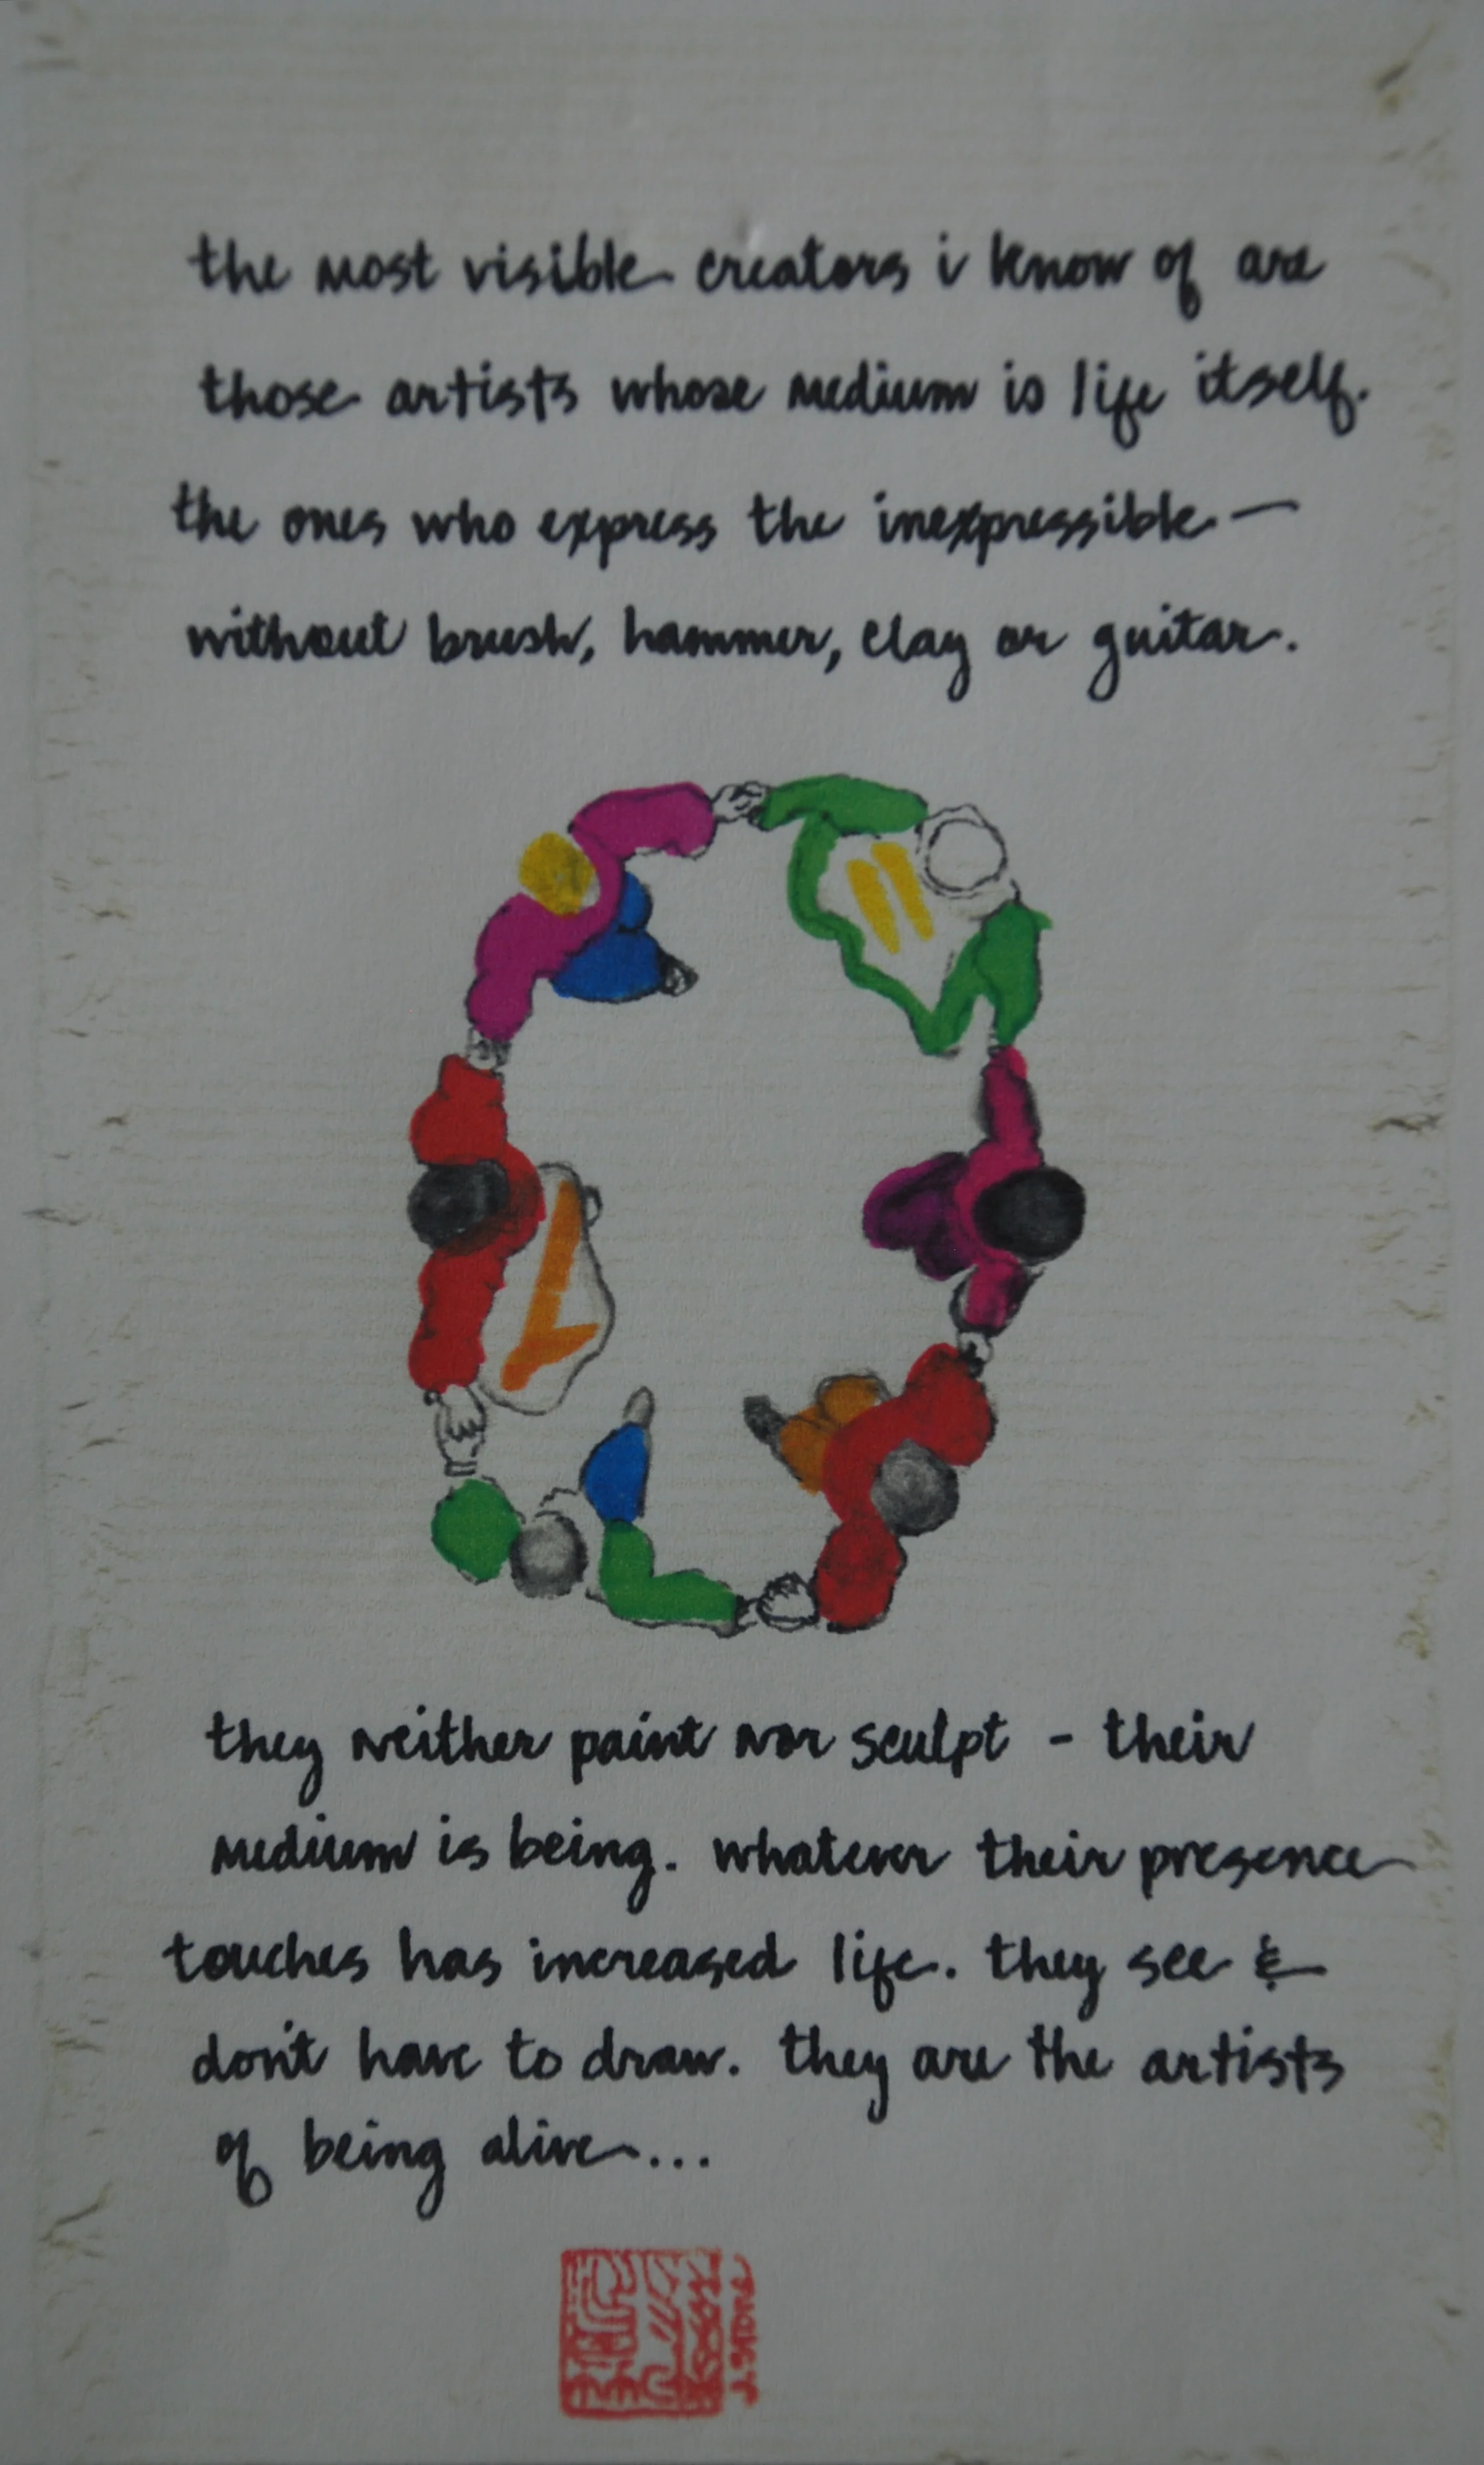 the most visible creators i know of are
those artists whose medium is life itself.
the ones who express the inexpressible —
without brush, hammer, clay or guitar.
they neither paint nor sculpt - their
medium is being. whatever their presence
touches has increased life. they see &
don't have to draw. they are the artists
of being alive...
J. Stone